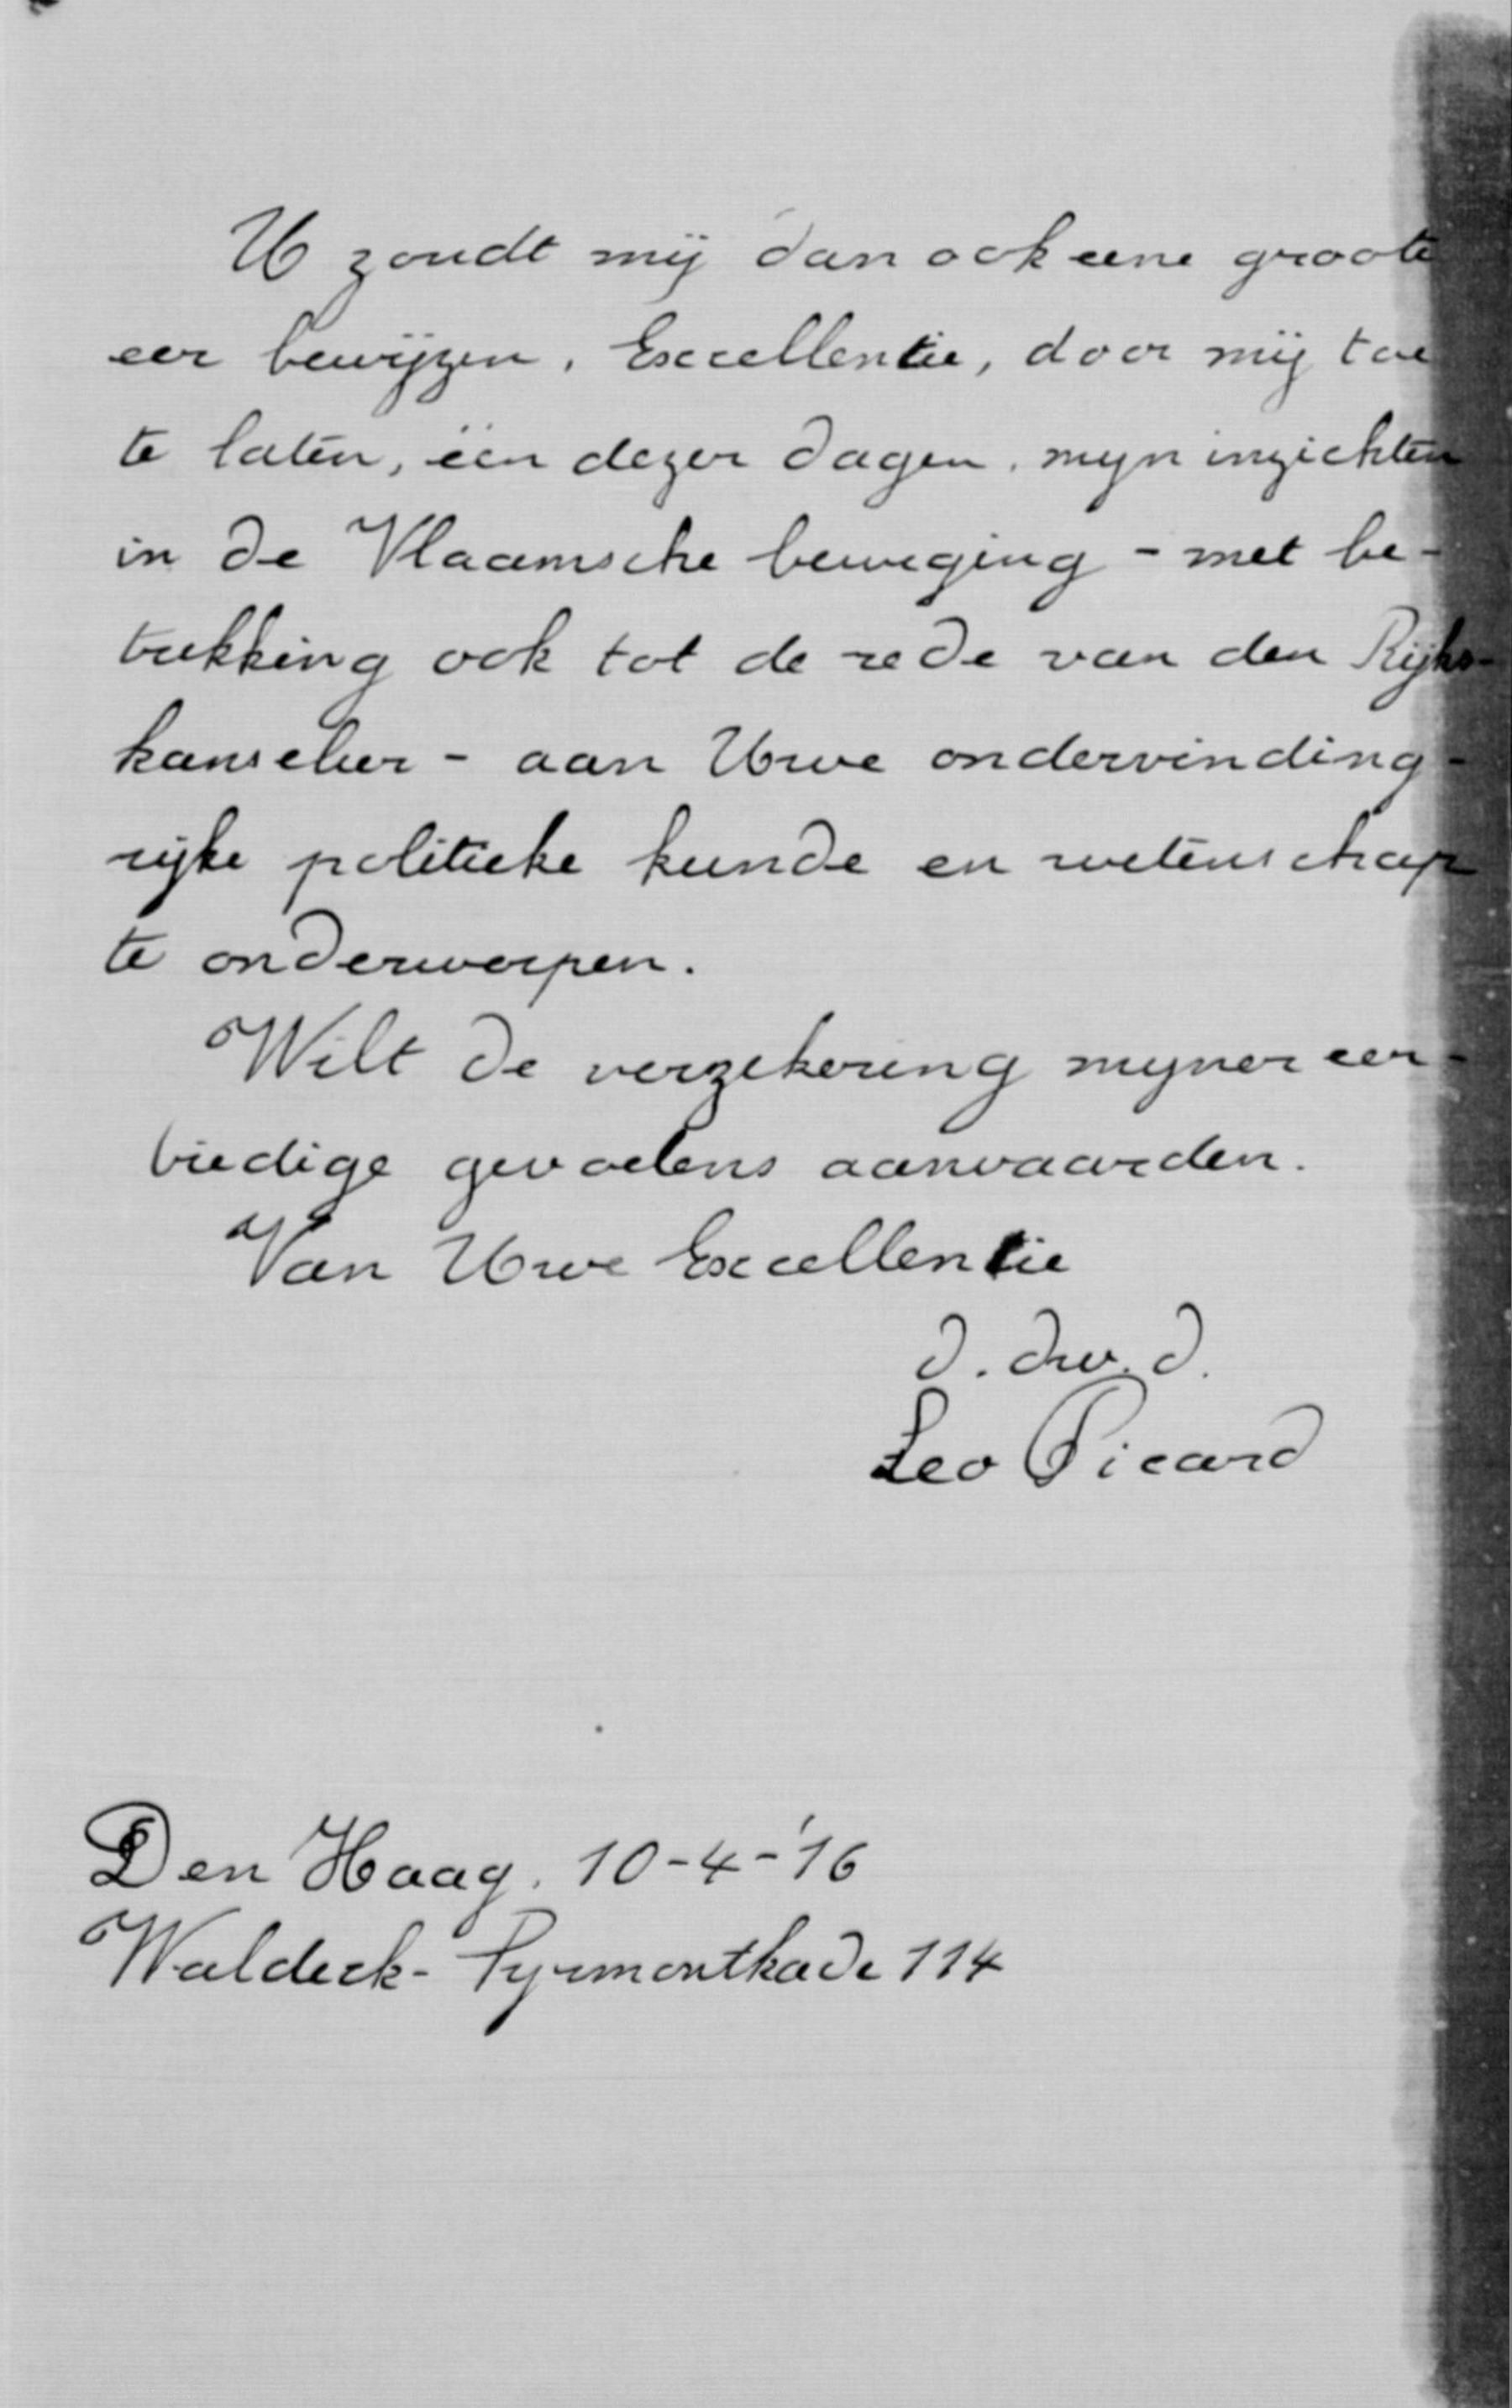 U zoudt mij dan ook eene groote
eer bewijzen, Excellentie, door mij toe
te laten, één dezer dagen, mijn inzichten
in de Vlaamsche beweging - met be-
trekking ook tot de rede van den Rijks-
kanselier - aan Uwe ondervinding-
rijke politieke kunde en wetenschap
te onderwerpen.
Wilt de verzekering mijner eer-
biedige gevoelens aanvaarden.
Van Uwe Excellentie
d. dw. d.
Leo Picard
Den Haag, 10-4-'16
Waldeck-Pyrmontkade 114